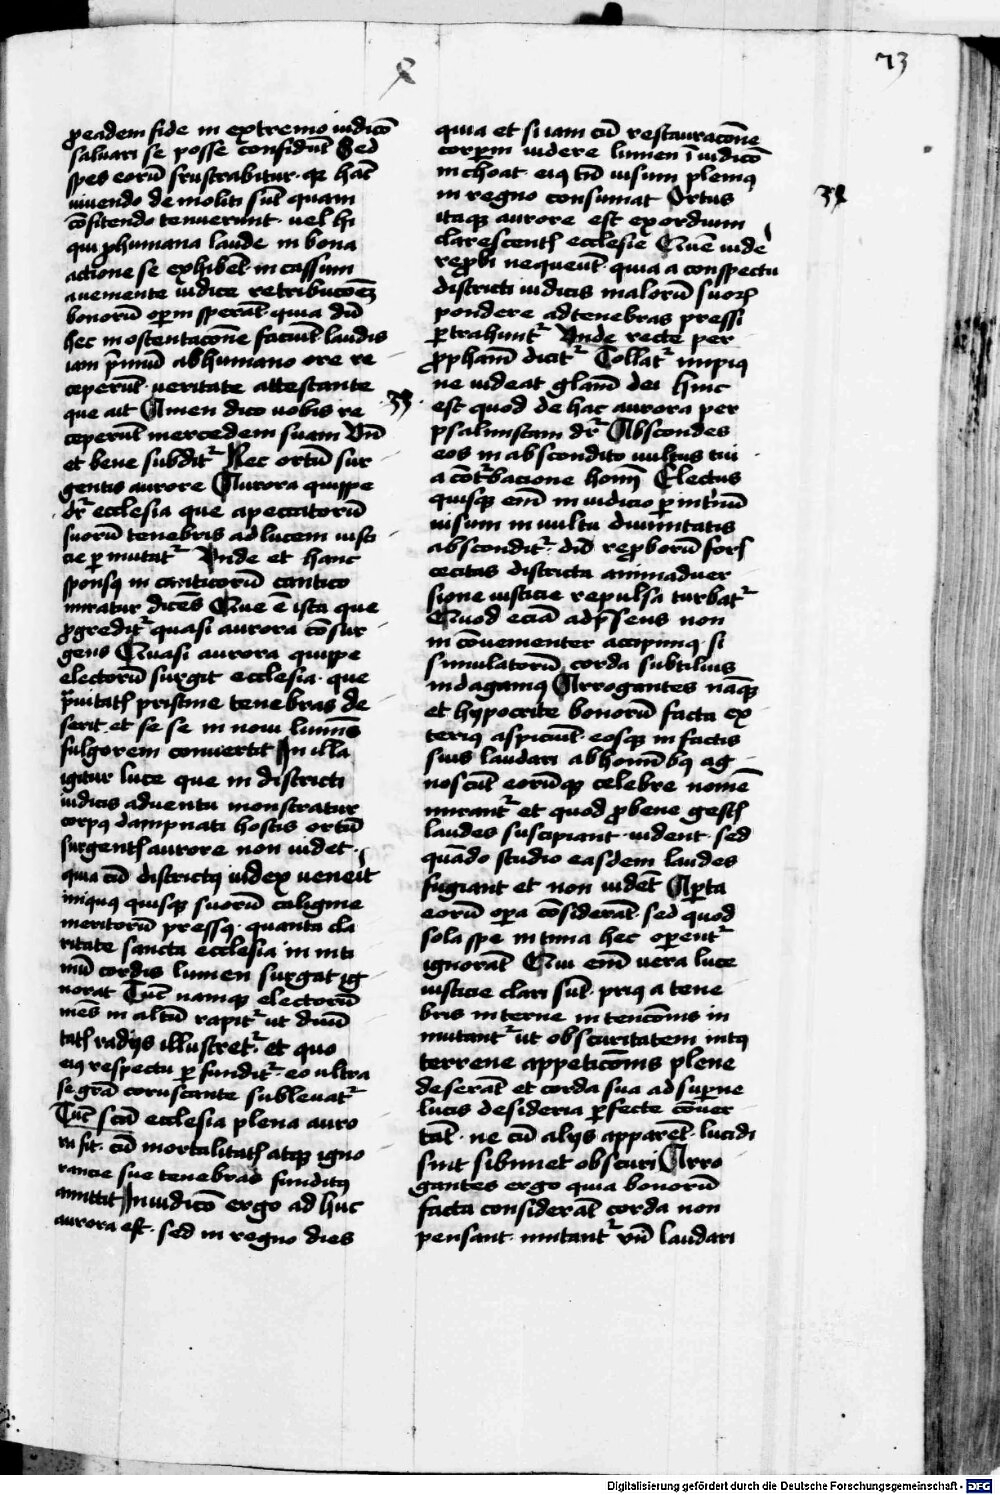 73
ꝓeadem fide in extremo iudicō
saluari se posse confidūt Sed
spes eorū frustrabitur · qꝫ hāc
viuendo de moliti sūt quam
cōfitendo tenuerunt · vel hi
qui ꝓ humana laude in bona
actione se exhibēt · in cassum
a veniente iudice retribucōeꝫ
bonorū operum sperāt · quia dū
hec in ostentacōne faciūt · laudis
iam p̄miū ab humano ore re
ceperūt · veritate attestante
que ait Amen dico vobis re
ceperūt mercedem suam Vn̄
et bene subditᷣ Nec ortū sur
gentis aurore Aurora quippe
dr̄ ecclesia que a peccatorū
suorū tenebris ad lucem iusti
cie ꝑ mutatᷣ Vnde et hanc
sponsꝰ in canticorū cantico
miratur dicēs Que ē ista que
ꝓgreditᷣ quasi aurora cōsur
gens Quasi aurora quippe
electorū surgit ecclesia · que
p̄uitatꝭ pristine tenebras de
serit · et se se in noui lumīs
fulgorem conuertit In illa
igitur luce que in districti
iudicis aduentu monstratur
corpꝰ dampnati hostis ortū
surgentꝭ aurore non videt ·
quia cū districtꝰ iudex veneīt
iniquꝰ quisqꝫ suorū caligine
meritorū pressꝰ · quanta cla
ritate sancta ecclesia in inti
mū cordis lumen surgat ig
norat Tūc namqꝫ electorū
mēs in altū rapitᷣ ut diuī
tatꝭ radijs illustretᷣ · et quo
eiꝰ respectu ꝑ funditᷣ · eo ultra
se grām coruscante subleuatᷣ
Tūc scā ecclesia plena auro
ra fit · cū mortalitatꝭ atqꝫ igno
rancie sue tenebras funditꝰ
amittit In iudicō ergo ad huc
aurora est · sed in regno dies
33
quia et si iam cū restauracōne
corꝑm videre lumen ī iudicō
inchoat · eiꝰ tn̄ visum pleniꝰ
in regno consumat Ortus
34
itaqꝫ aurore est exordium
clarescentꝭ ecclesie Quē vide
reꝓbi nequeūt · quia a conspectu
districti iudicis malorū suorꝭ
pondere ad tenebras pressi
ꝑtrahuntᷣ Vnde recte per
ꝓphām dicitᷣ Tollatᷣ impiꝰ
ne videat glām dei hinc
est quod de hac aurora per
psalmistam dr̄ Abscondes
eos in abscondito vultus tui
a cōtᷣbacione homī Electus
quisqꝫ eīm in iudicio ꝑ intᷣnū
visum in vultu diuinitatis
absconditᷣ · dū reꝓborū forꝭ
cecitas districta animaduer
sione iusticie repulsa turbatᷣ
Quod eciā ad p̄sens non
in cōuenienter accipimꝰ · si
simulatorū corda subtilius
indagamꝰ Arrogantes nāqꝫ
et hypocrite bonorū facta ex
teriꝰ aspiciūt · eosqꝫ in factis
suis laudari ab hominibꝰ ag
noscūt eorūqꝫ celebre nomē
mirantᷣ et quod ꝓ bene gestꝭ
laudes suscipiant · vident · sed
quādo studio easdem laudes
fugiant et non vidēt Aꝑta
eorū oꝑa cōsiderāt · sed quod
sola spe intima hec oꝑentᷣ
ignorāt Qui eīm vera luce
iusticie clari sūt · priꝰ a tene
bris interne intencōnis in
mutantᷣ ut obscuritatem intꝰ
terrene appeticōnis plene
deserāt et corda sua ad suꝑne
lucis desideria ꝑfecte cōuer
tāt · ne cū alijs apparēt · lucidi
sint sibimet obscuri Arro
gantes ergo quia bonorū
facta considerāt corda non
pensant · imitantᷣ vn̄ laudari